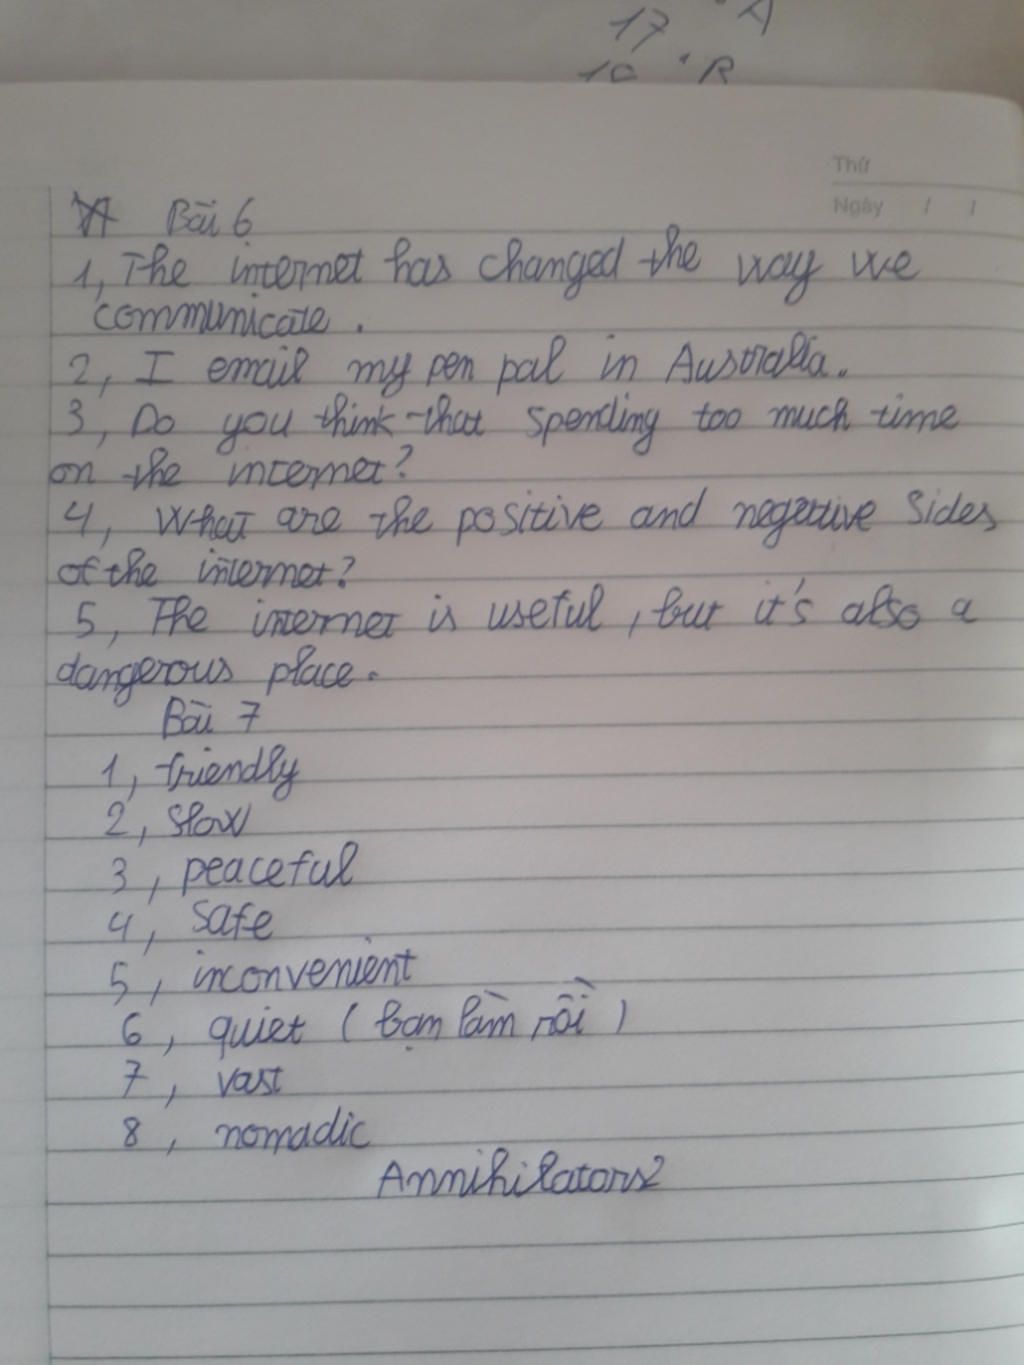 17 . A
10 . R
Thứ
Ngày / /
Bài 6
1, The internet has changed the way we
communicate.
2, I email my pen pal in Australia.
3, Do you think that spending too much time
on the internet?
4, What are the positive and negative sides
of the internet?
5, The internet is useful, but it's also a
dangerous place.
Bài 7
1, friendly
2, slow
3, peaceful
4, safe
5, inconvenient
6, quiet (bạn làm rồi)
7, vast
8, nomadic
Annihilators2